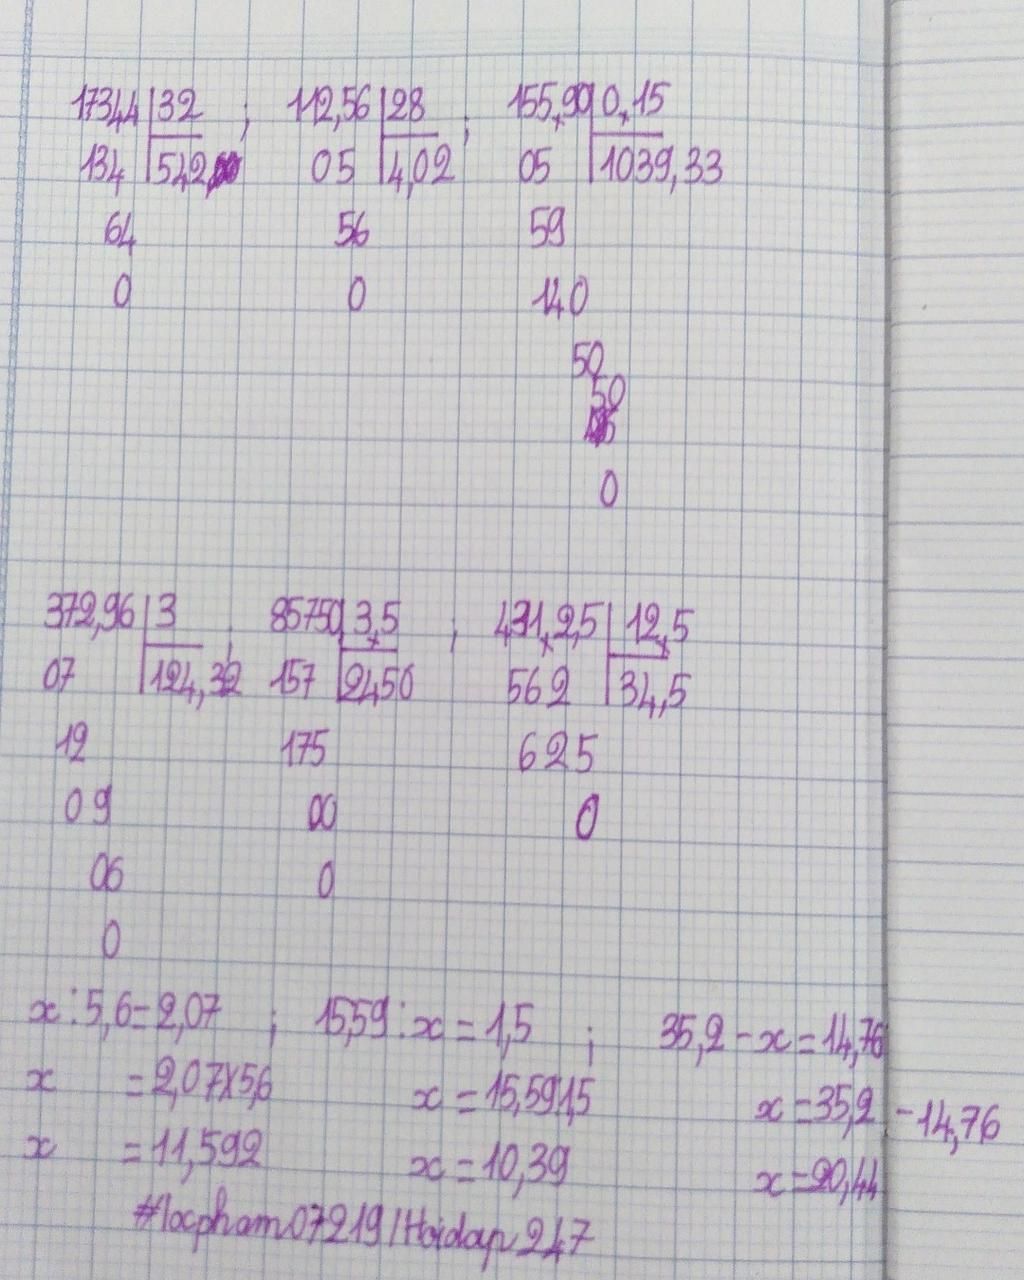 17344 32 ; 112,56 28 ; 155,90 0,15
134 542, 05 4,02 05 1039,33
64 56 59
0 0 140
50
50
0
372,96 3 ; 85750 3,5 ; 431,2,5 12,5
07 124,32 157 2450 562 34,5
12 175 625
09 00 0
06 0
0
x : 5,6 = 2,07 ; 15,59 : x = 1,5 ; 35,2 - x = 14,76
x = 2,07 x 5,6 x = 15,59 1,5 x = 35,2 - 14,76
x = 11,592 x = 10,39 x = 20,44
#locpham07219 / Hoidap 247